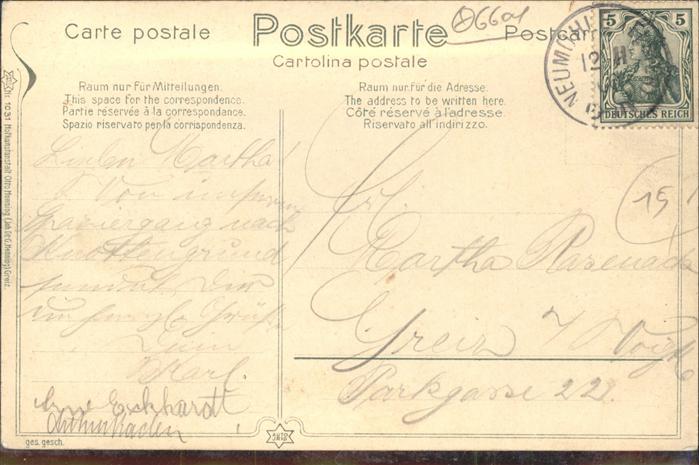 Carte postale
Postkarte
Postcard
Cartolina postale
6601
NEUMÜHLE
12
5
5
DEUTSCHES REICH
Raum nur für Mitteilungen.
This space for the correspondence.
Partie réservée à la correspondance.
Spazio riservato per la corrispondenza.
Raum nur für die Adresse.
The address to be written here.
Côté réservé à l'adresse.
Riservato all indirizzo.
Nr. 1031 Hofkunstanstalt Otto Henning (Jnh. Dr. G. Henning) Greiz.
Martha!
Von unserm
Spaziergang nach
Knottengrund
sendet Dir
Karl.
Eckhardt
Frl.
15
Martha
Greiz i/ Voigtl
Parkgasse 22.
ges. gesch.